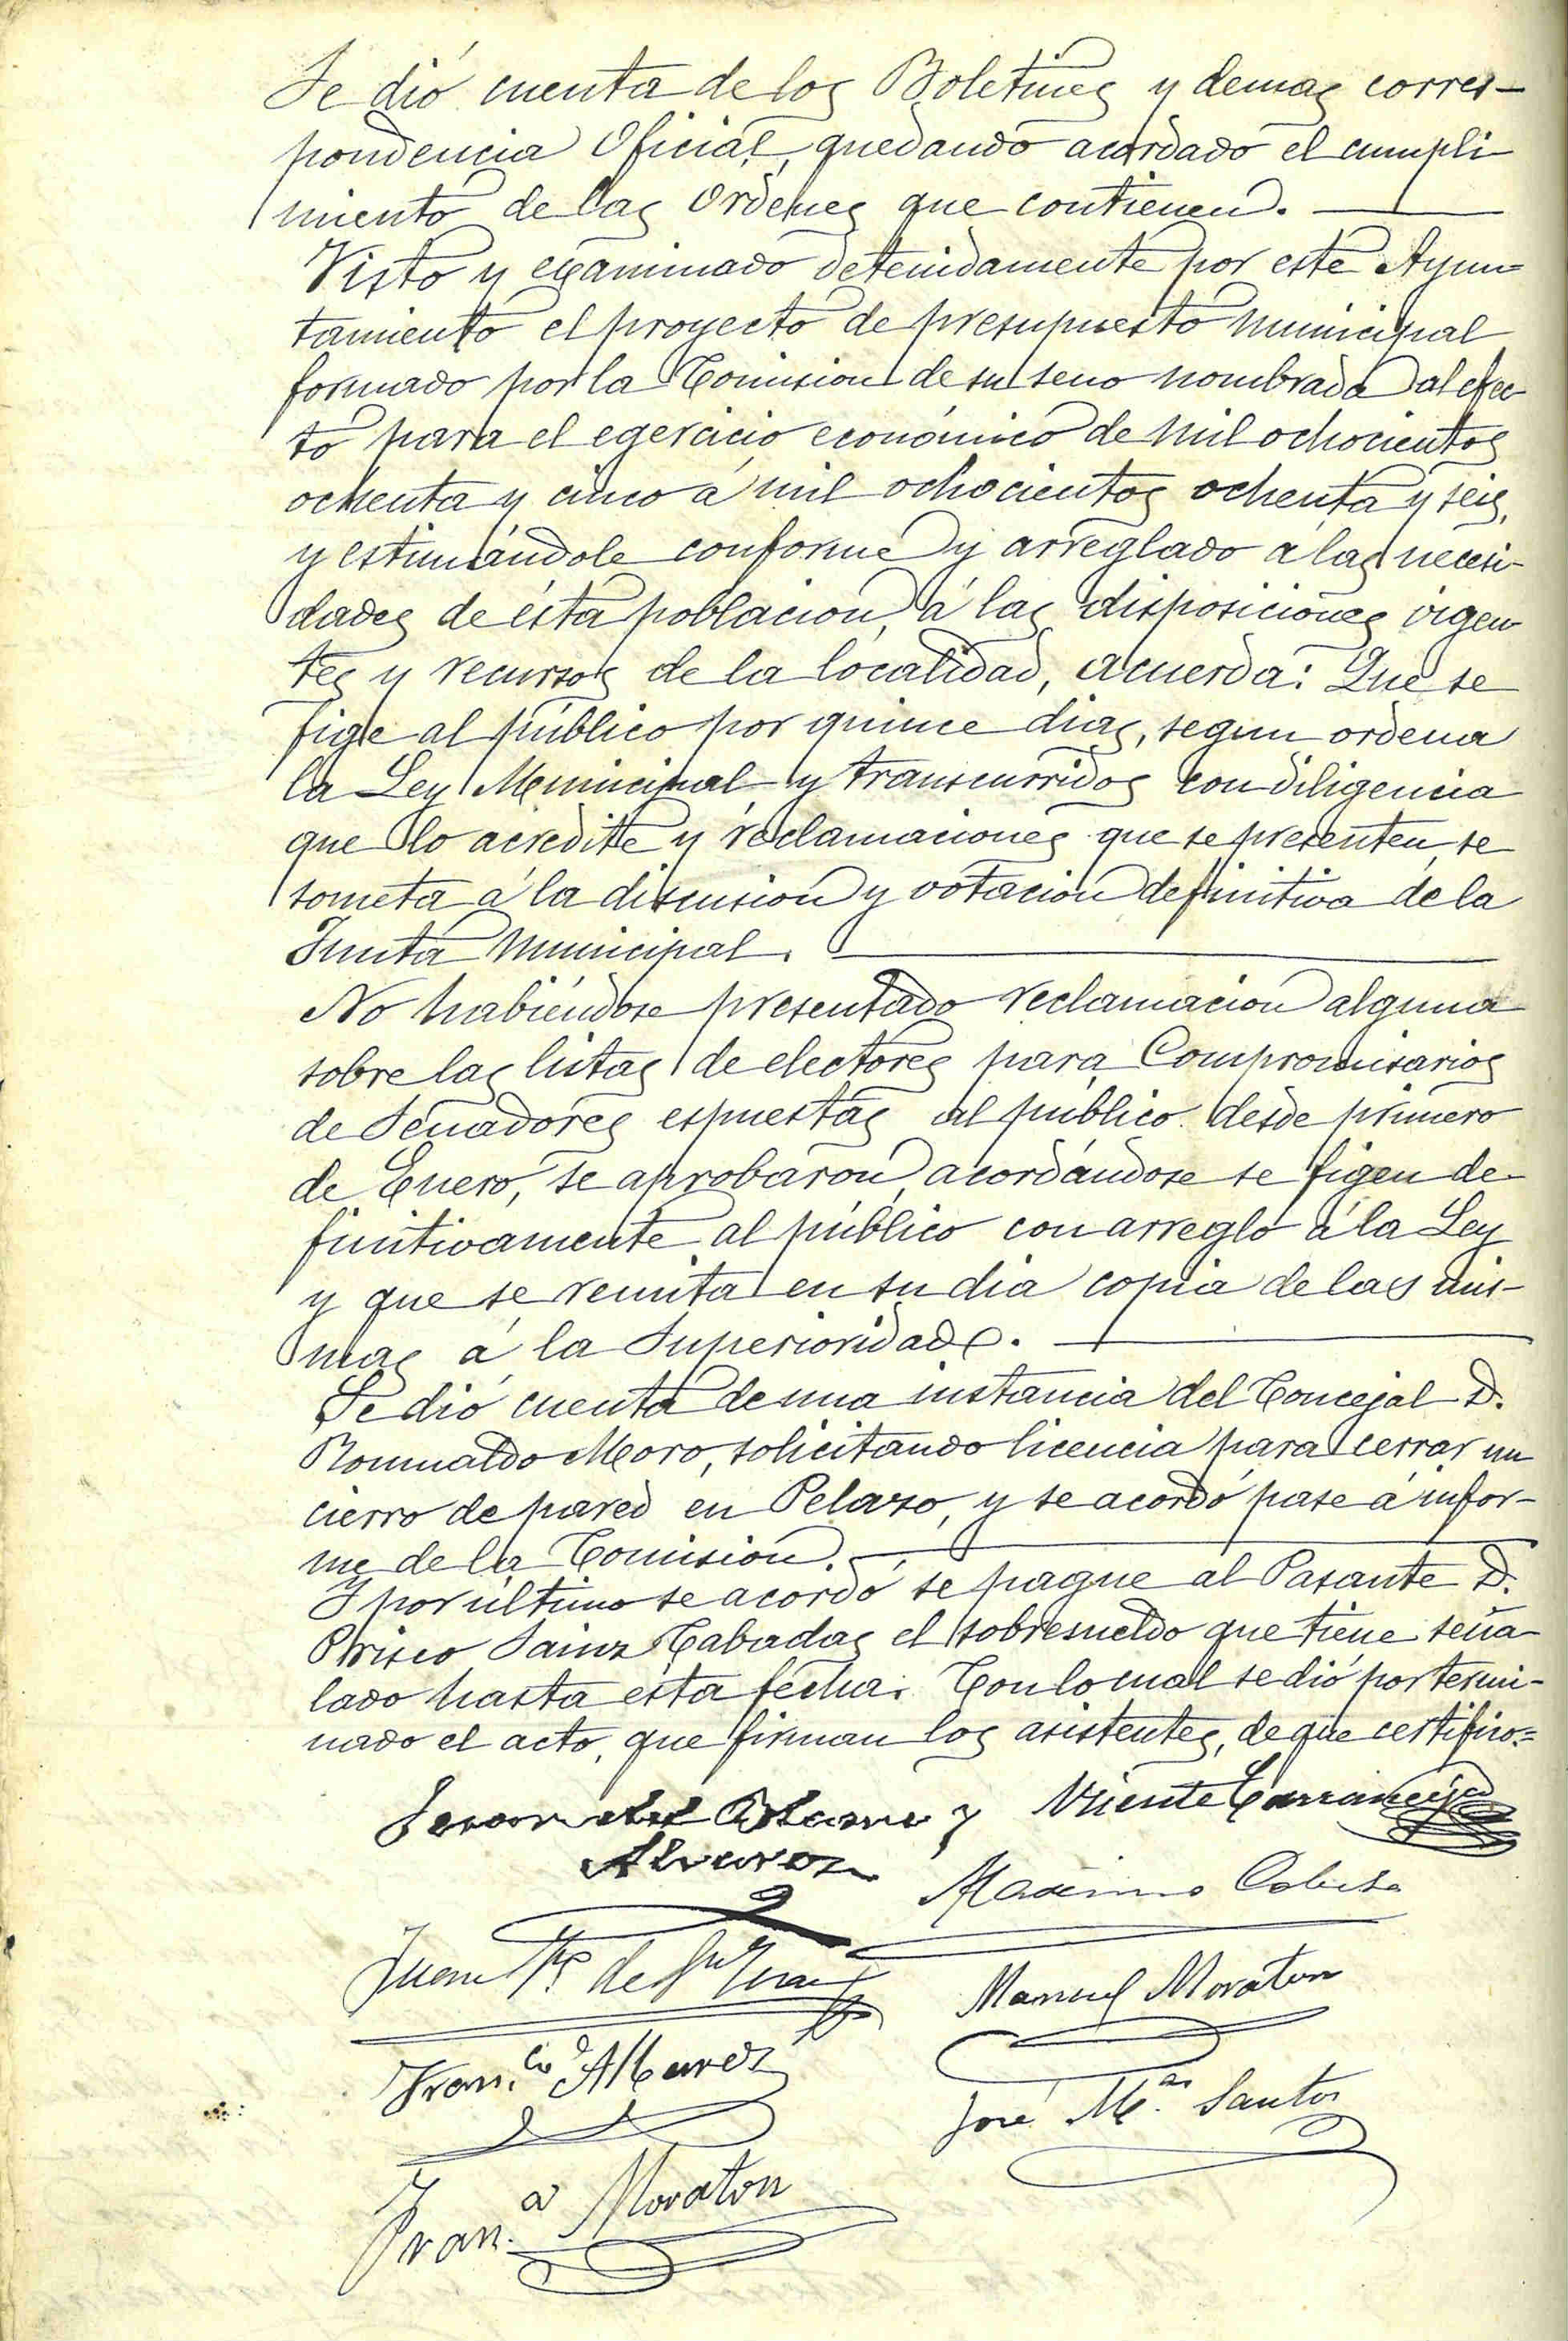 Se dió cuenta de los Boletines y demas corres-
pondencia Oficial, quedando acordado el cumpli-
miento de las Ordenes que contienen.
Visto y examinado detenidamente por este Ayun-
tamiento el proyecto de presupuesto municipal
formado por la Comision de su seno nombrada al efec-
to para el egercicio económico de mil ochocientos
ochenta y cinco á mil ochocientos ochenta y seis,
y estimándole conforme y arreglado a las necesi-
dades de ésta poblacion, á las disposiciones vigen-
tes y recursos de la localidad, acuerda: Que se
fige al público por quince dias, segun ordena
la Ley Municipal y transcurridos con diligencia
que lo acredite y reclamaciones que se presenten, se
someta á la discusion y votacion definitiva de la
Junta Municipal.
No habiéndose presentado reclamacion alguna
sobre las listas de electores para Compromisarios
de Senadores espuestas al público desde primero
de Enero, se aprobaron, acordándose se figen de-
finitivamente al público con arreglo á la Ley
y que se remita en su dia copia de las mis-
mas á la Superioridad.
Se dió cuenta de una instancia del Concejal D.
Romualdo Moro, solicitando licencia para cerrar un
cierro de pared en Pelazo, y se acordó pase á infor-
me de la Comision.
Y por último se acordó se pague al Pasante D.
Prisco Sainz Cabadas el sobresueldo que tiene seña-
lado hasta ésta fecha. Con lo cual se dió por termi-
nado el acto, que firman los asistentes, de que certifico.=
y Vicente Carranceja
Alvarez
Maximo
Juan Fz de Sn Juan
Manuel Moraton
Fran.co Alvarez
José M.a Santos
Fran.co Moraton